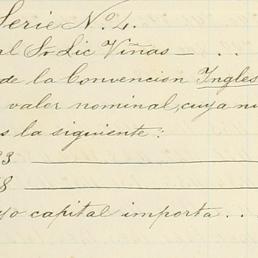 Serie No. 4.
al Sr Lic Viñas — . .
de la Convencion Ingles
valor nominal, cuya nu
s la siguiente:
23
8
yo capital importa . .